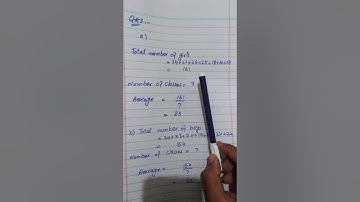 a)
Total number of girls
= 161
Number of classes = 7
Average = 161/7
= 23
b) Total number of boys
= 154
Number of classes = 7
Average = 154/7
= 22